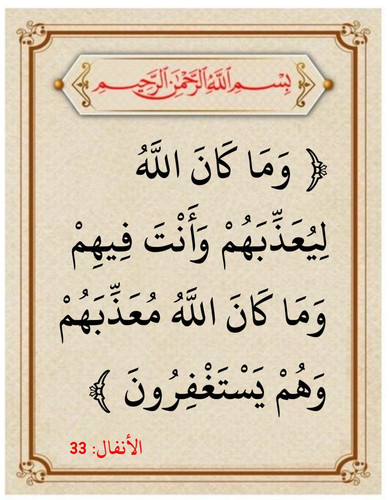 بِسْمِ اللَّهِ الرَّحْمَٰنِ الرَّحِيمِ
﴿ وَمَا كَانَ اللَّهُ
لِيُعَذِّبَهُمْ وَأَنْتَ فِيهِمْ
وَمَا كَانَ اللَّهُ مُعَذِّبَهُمْ
وَهُمْ يَسْتَغْفِرُونَ ﴾
الأنفال: 33